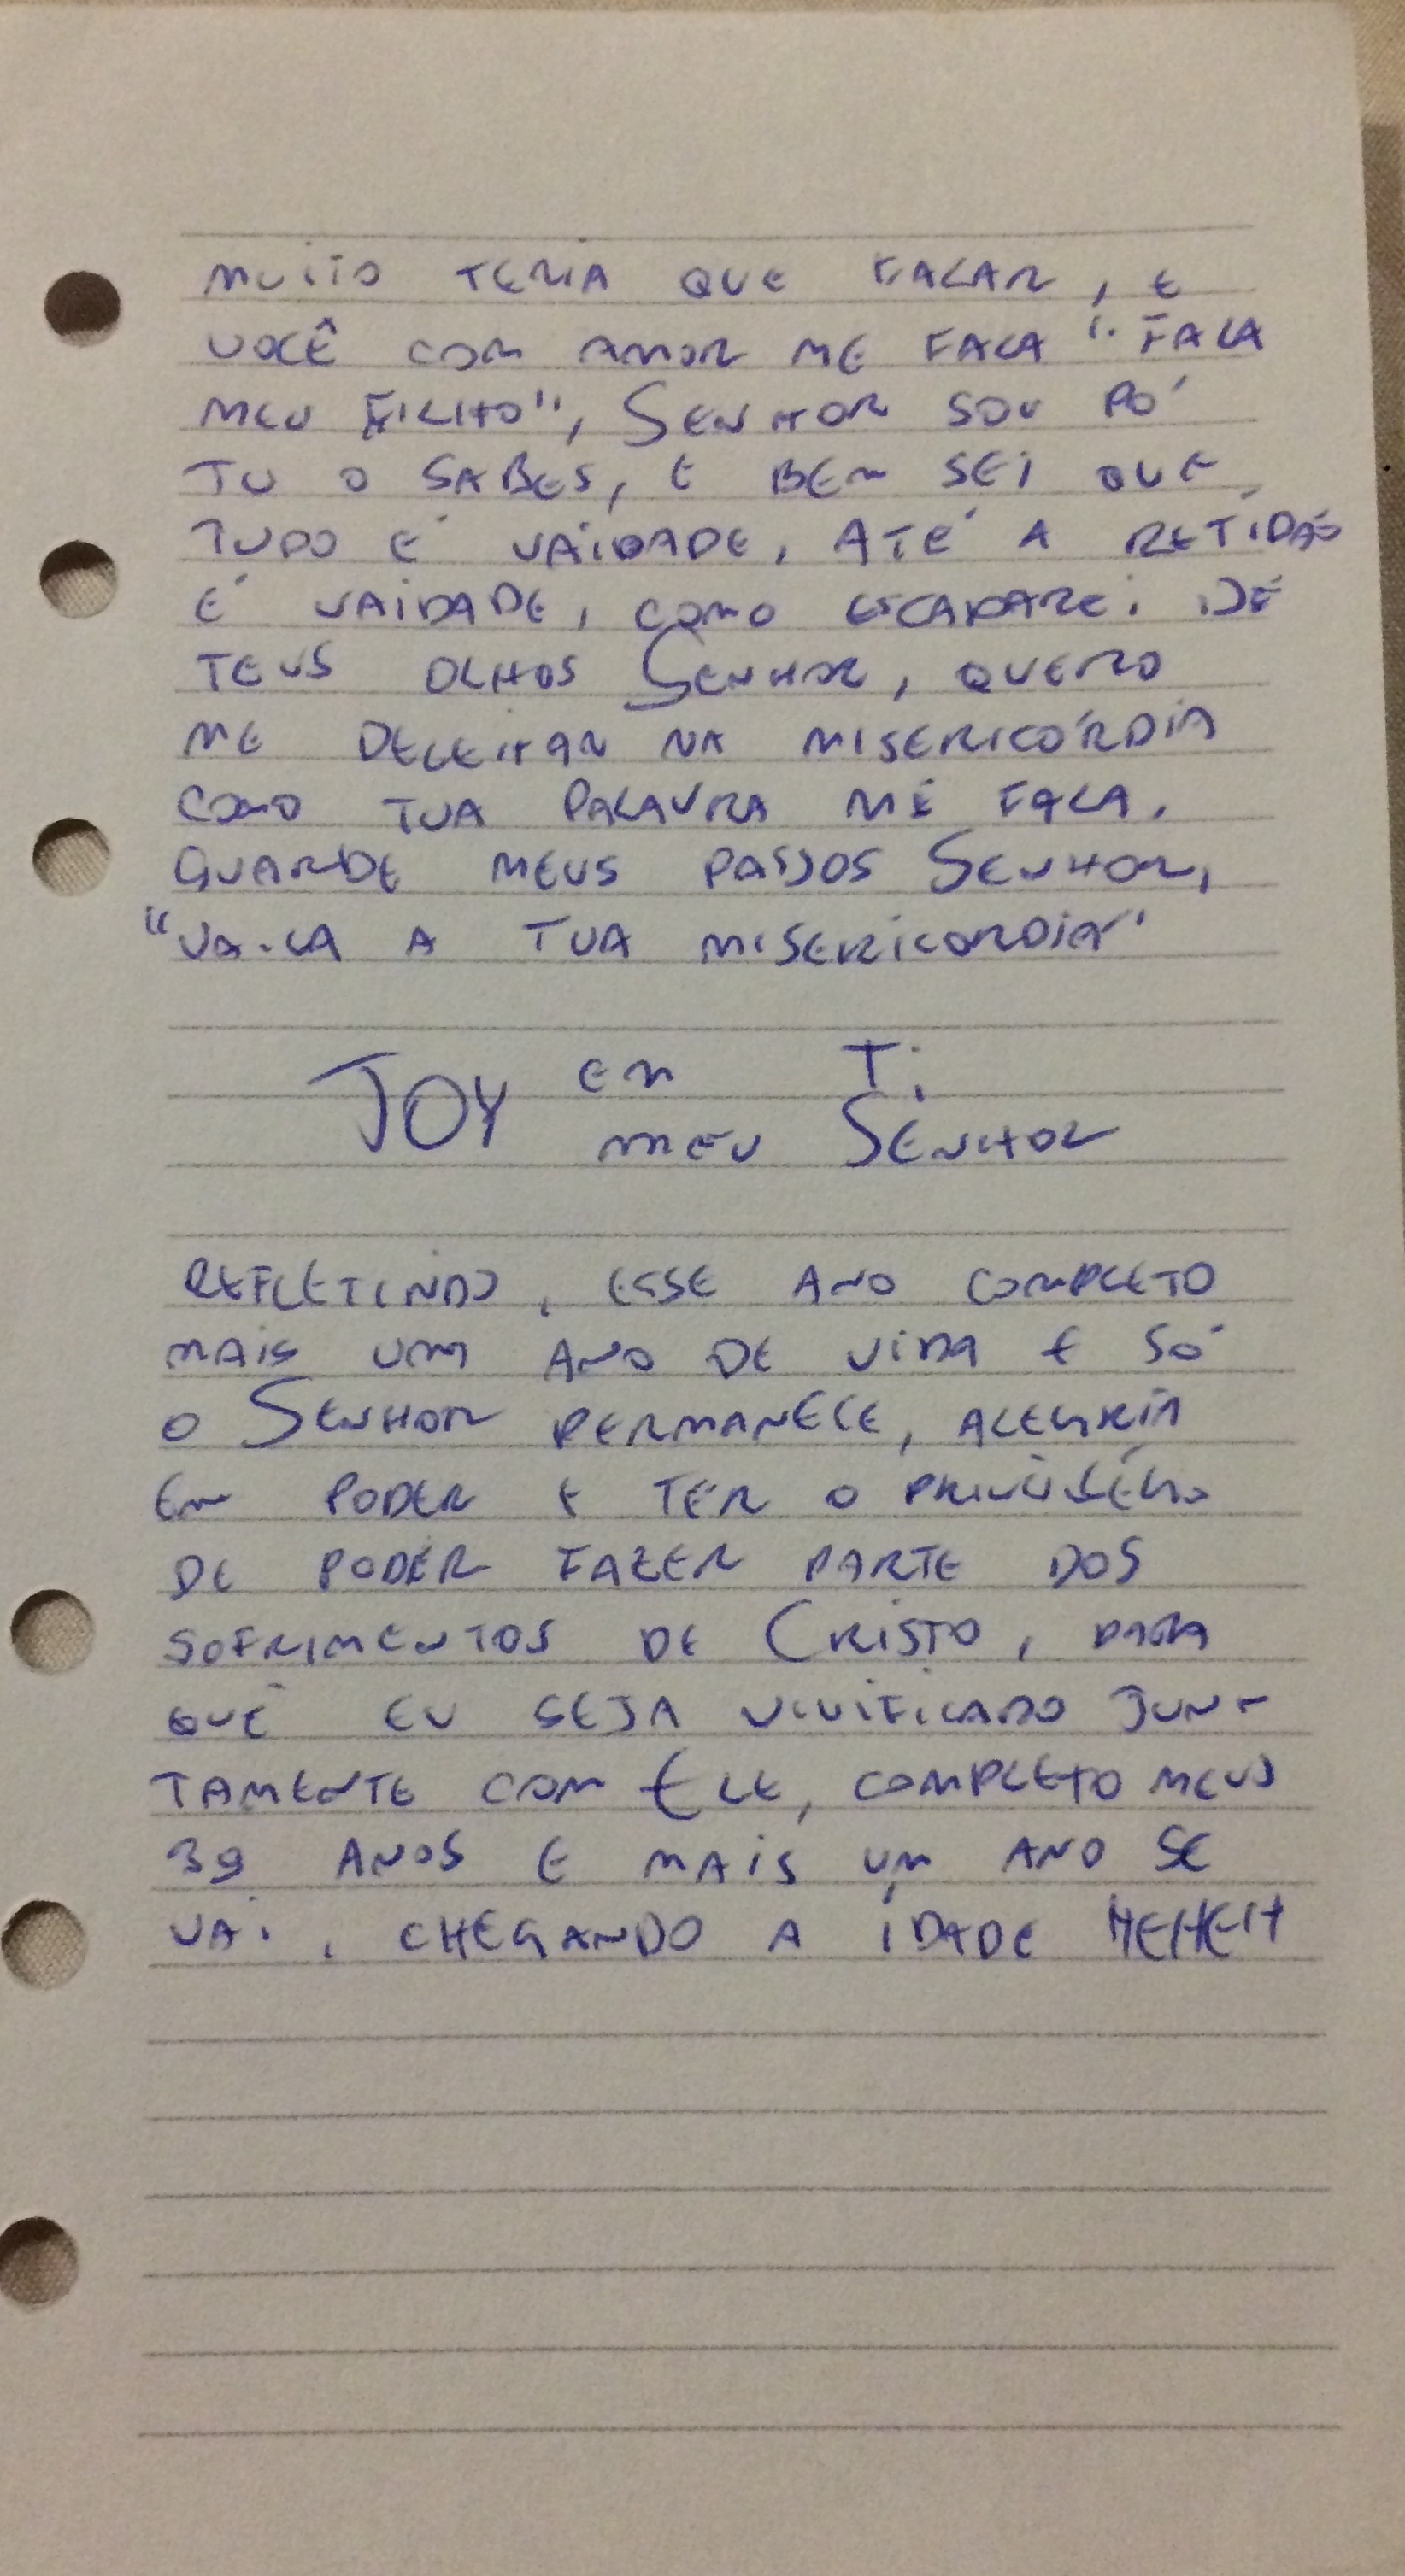 MUITO TERIA QUE FALAR, E
VOCÊ COM AMOR ME FALA "FALA
MEU FILHO", SENHOR SOU PÓ
TU O SABES, E BEM SEI QUE
TUDO É VAIDADE, ATÉ A RETIDÃO
É VAIDADE, COMO ESCAPAREI DE
TEUS OLHOS SENHOR, QUERO
ME DELEITAR NA MISERICÓRDIA
COMO TUA PALAVRA ME FALA,
GUARDE MEUS PASSOS SENHOR,
A TUA MISERICORDIA"
JOY EM TI
MEU SENHOR
REFLETINDO, ESSE ANO COMPLETO
MAIS UM ANO DE VIDA E SÓ
O SENHOR PERMANECE, ALEGRIA
EM PODER E TER O PRIVILÉGIO
DE PODER FAZER PARTE DOS
SOFRIMENTOS DE CRISTO, PARA
QUE EU SEJA VIVIFICADO JUN-
TAMENTE COM ELE, COMPLETO MEUS
39 ANOS E MAIS UM ANO SE
VAI, CHEGANDO A IDADE HEHEH